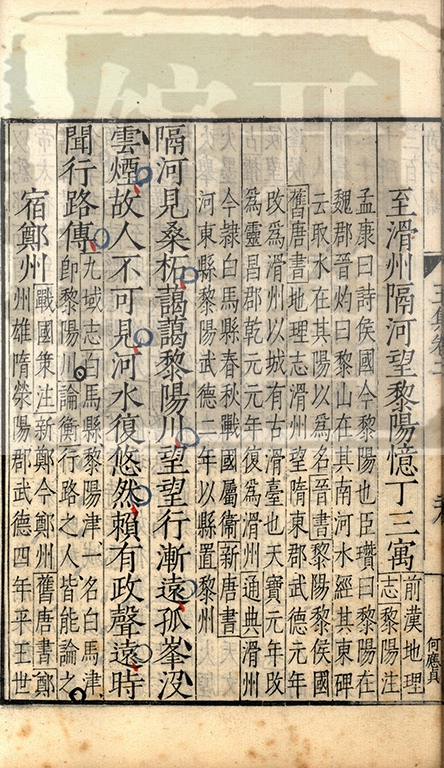 至滑州隔河望黎陽憶丁三寓
前漢地理
志黎陽注
孟康曰詩侯國今黎陽也臣瓚曰黎陽在
魏郡晉灼曰黎山在其南河水經其東碑
云取水在其陽以爲名晉書黎陽黎侯國
舊唐書地理志滑州望隋東郡武德元年
改爲滑州以城有古滑臺也天寶元年改
爲靈昌郡乾元元年復爲滑州通典滑州
今隸白馬縣春秋戰國屬衞新唐書
河東縣黎陽武德二年以縣置黎州
隔河見桑柘藹藹黎陽川望望行漸遠孤峯沒
雲煙故人不可見河水復悠然賴有政聲遠時
聞行路傳
九域志白馬縣黎陽津一名白馬津
即黎陽川論衡行路之人皆能論之
宿鄭州
戰國策注新鄭今鄭州舊唐書鄭
州雄隋滎陽郡武德四年平王世
何應貞